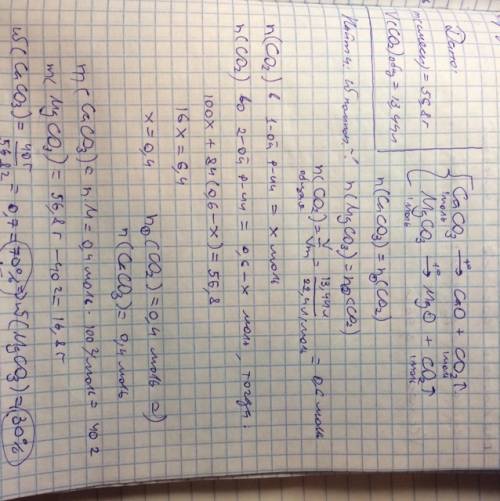 Дано:
m(смеси) = 56,8 г
V(CO₂)общ = 13,44 л
Найти: ω компон. -?
CaCO₃ →t° CaO + CO₂↑
1 моль 1 моль
MgCO₃ →t° MgO + CO₂↑
1 моль 1 моль
n(CaCO₃) = n①(CO₂)
n(MgCO₃) = n②(CO₂)
n(CO₂)общая = V/Vm = 13,44 л / 22,4 л/моль = 0,6 моль
n(CO₂) в 1-ой р-ии = x моль
n(CO₂) во 2-ой р-ии = 0,6-x моль, тогда
100x + 84(0,6-x) = 56,8
16x = 6,4
x = 0,4
n①(CO₂) = 0,4 моль ⇒
n(CaCO₃) = 0,4 моль
m(CaCO₃) = n·M = 0,4 моль · 100 г/моль = 40 г
m(MgCO₃) = 56,8 г - 40 г = 16,8 г
ω(CaCO₃) = 40 г / 56,8 г = 0,7 = 70% ⇒ ω(MgCO₃) = 30%